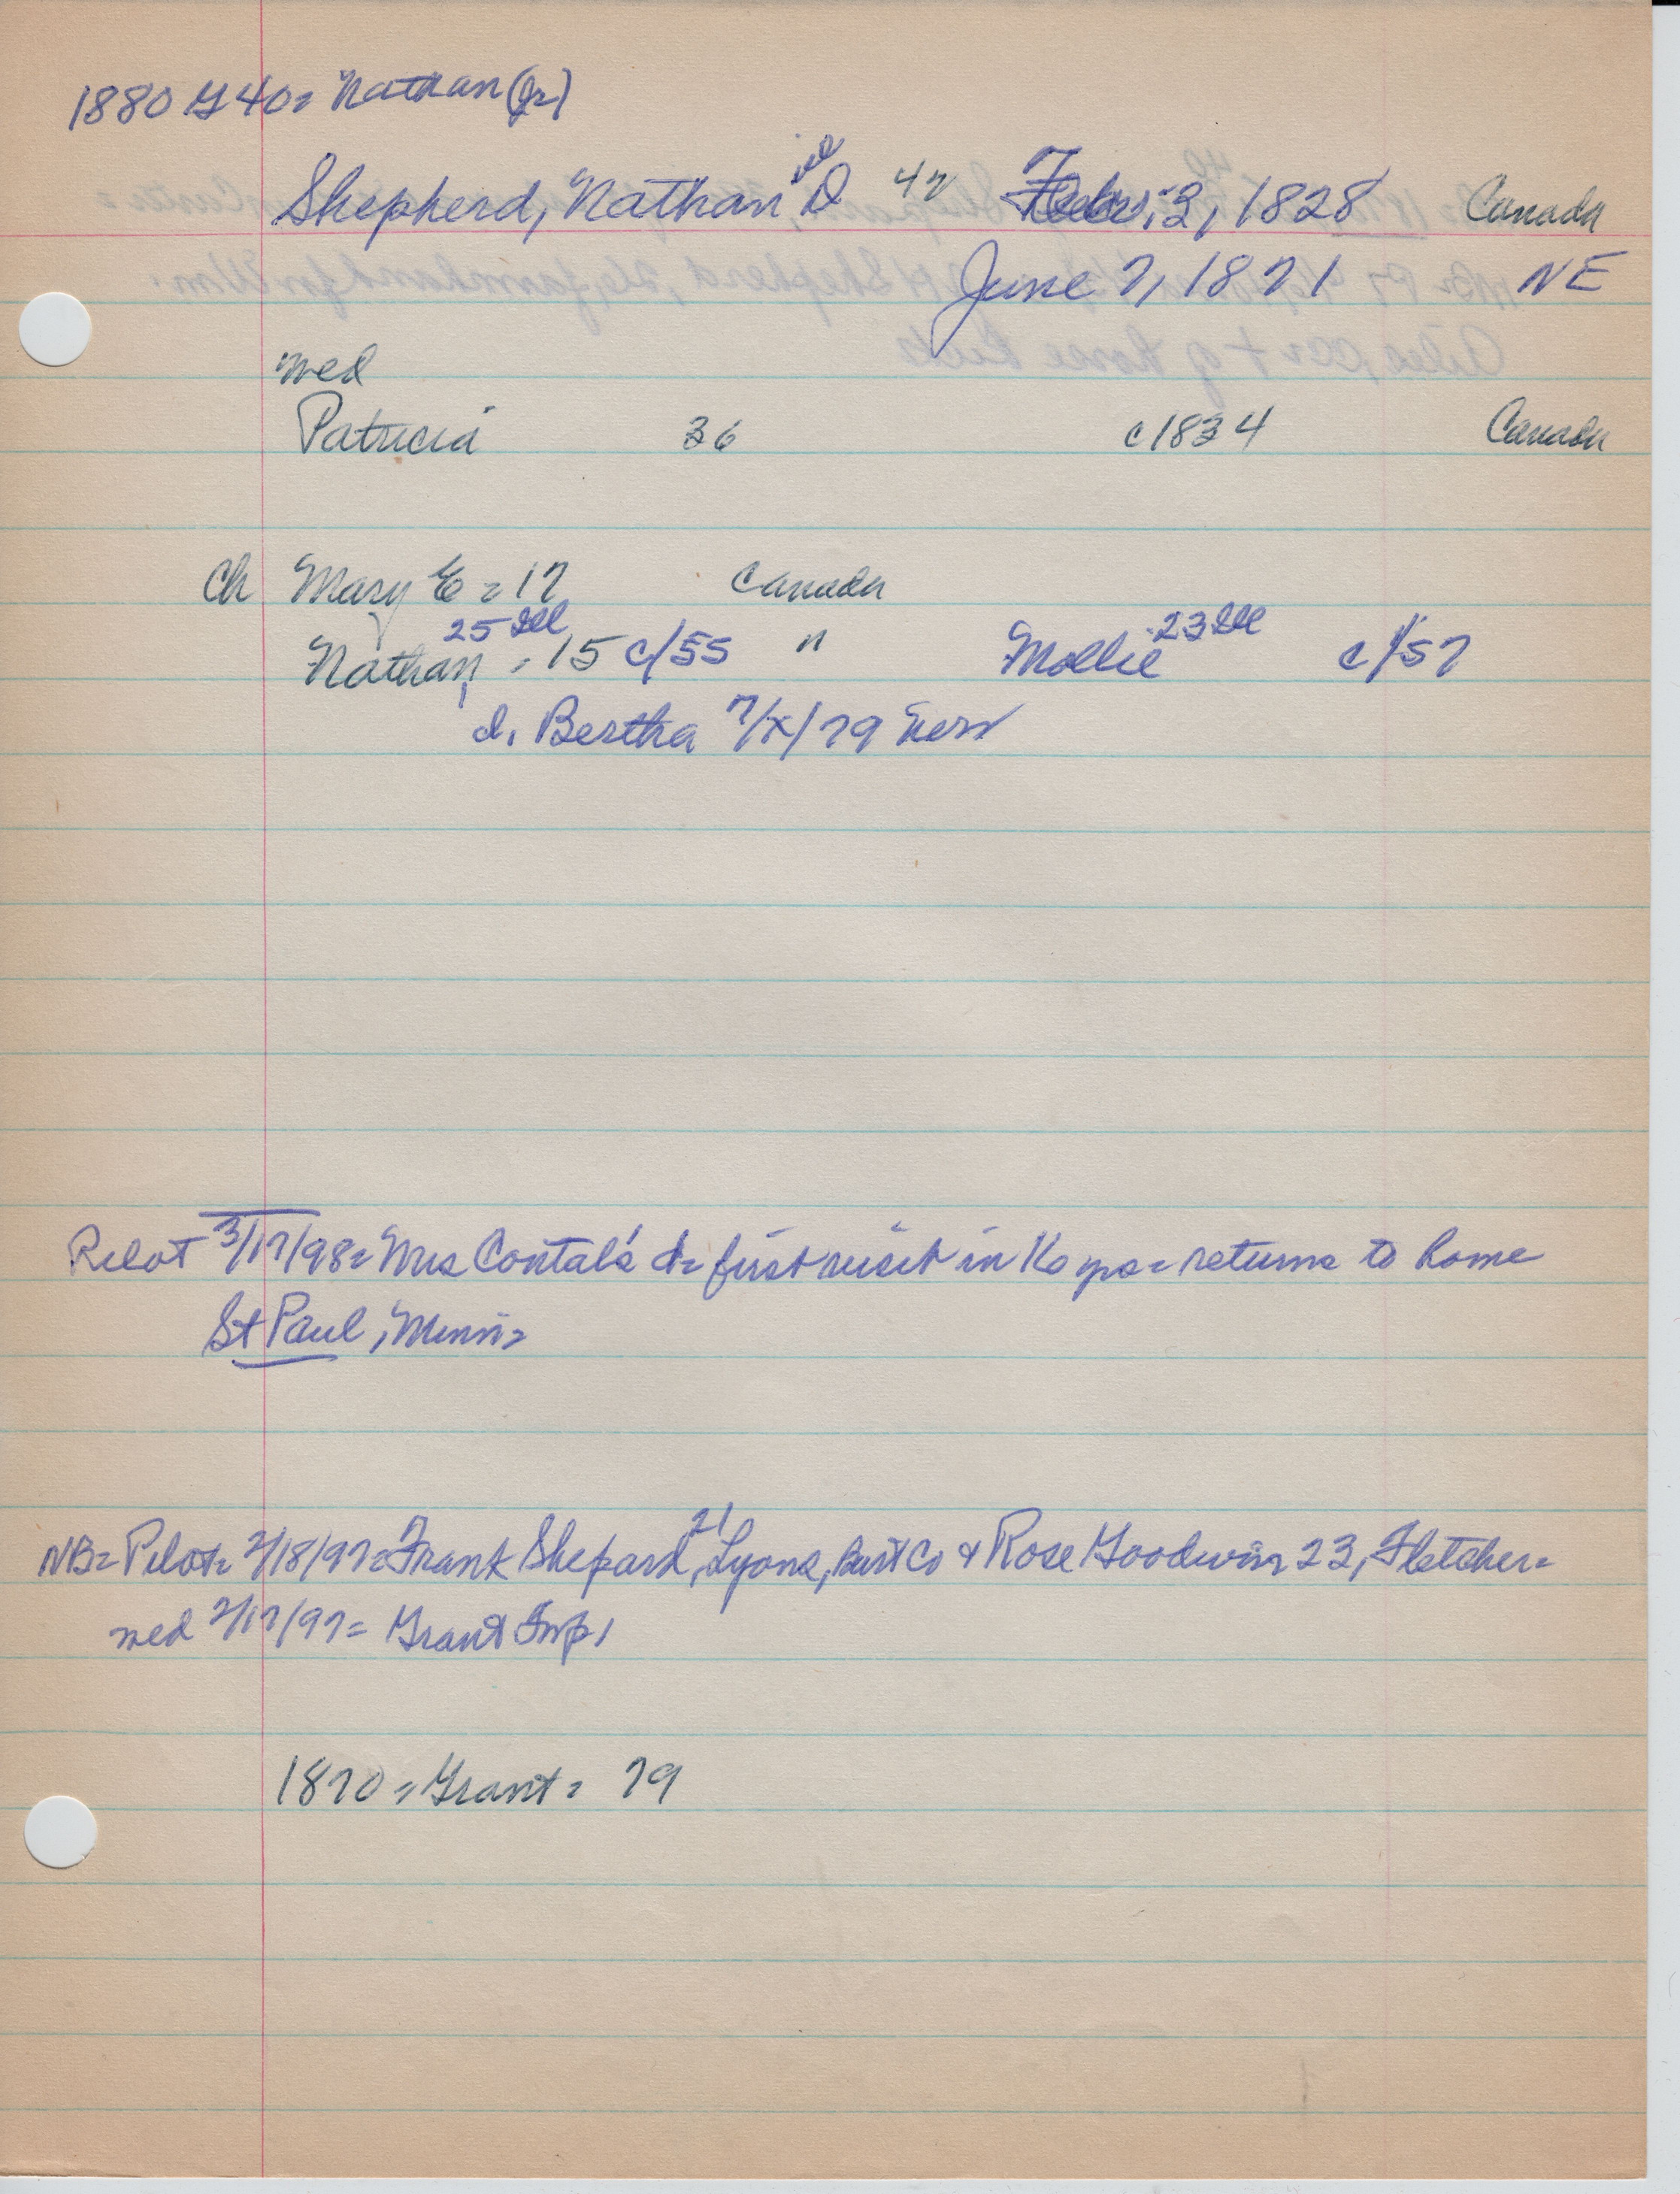 1880 G 40= Nathan (Jr)
Shepherd, Nathan D 42 Feb. 3, 1828 Canada
June 7, 1871 NE
wed
Patricia 36 c1834 Canada
Ch Mary E = 17 Canada
25 Ill 23 Ill
Nathan = 15 c/55 " Mollie c/57
d. Bertha 7/x/79 Nebr
Pilot 3/17/98= Mrs Contal's d= first visit in 16 yrs = returns to home
St Paul, Minn=
21
NB= Pilot= 2/18/97= Frank Shepard, Lyons, Burt Co & Rose Goodwin 23, Fletcher=
wed 2/17/97= Grant Twp.
1870 = Grant = 79